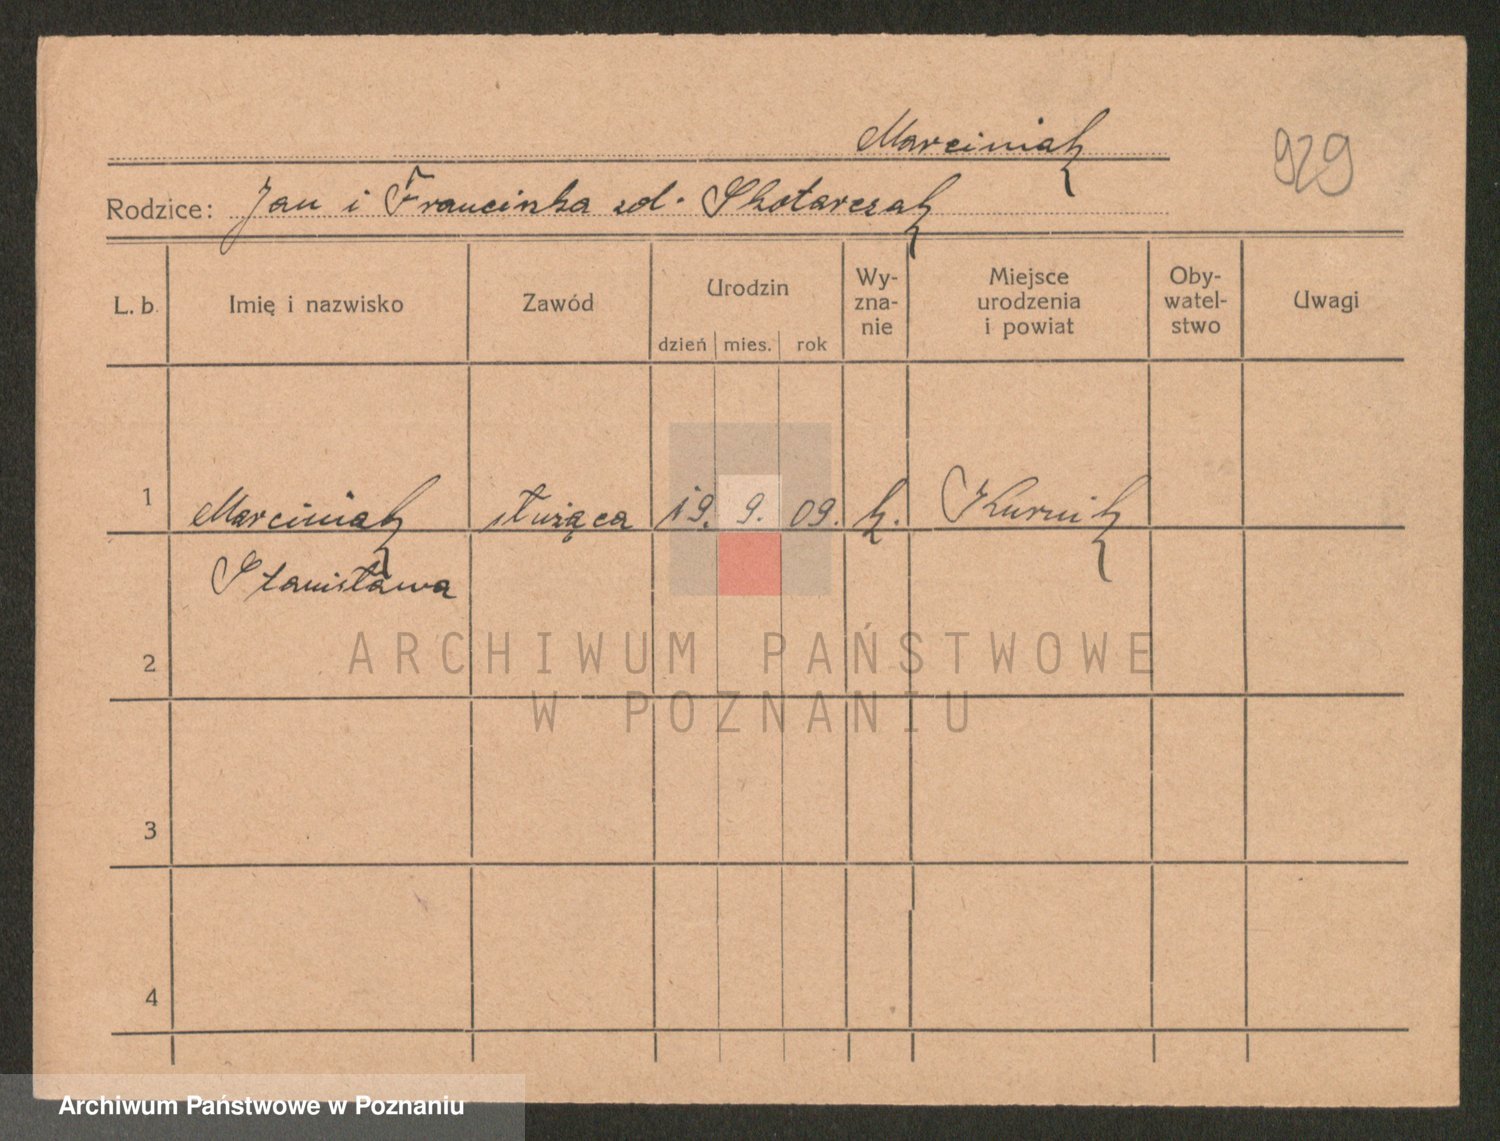 Marciniak
929
Rodzice: Jan i Francinka zd. Skotarczak
L. b. Imię i nazwisko Zawód Urodzin dzień mies. rok Wy-zna-nie Miejsce urodzenia i powiat Oby-watel-stwo Uwagi
1 Marciniak służąca 19. 9. 09. k. Kurnik
Stanisława
2
ARCHIWUM PAŃSTWOWE
W POZNANIU
3
4
Archiwum Państwowe w Poznaniu